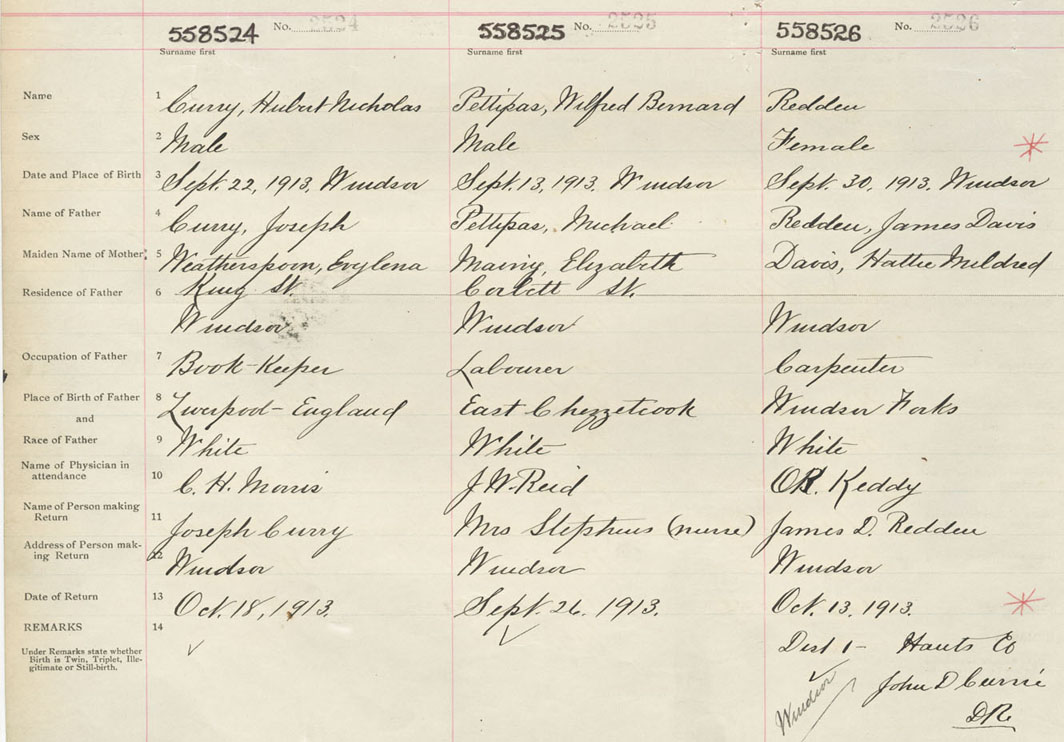 558524 No. 2524 558525 No. 2525 558526 No. 2526
Surname first Surname first Surname first
Name 1 Curry, Hubert Nicholas Pettipas, Wilfred Bernard Redden
Sex 2 Male Male Female
Date and Place of Birth 3 Sept. 22, 1913, Windsor Sept. 13, 1913. Windsor Sept. 30, 1913. Windsor
Name of Father 4 Curry, Joseph Pettipas, Michael Redden, James Davis
Maiden Name of Mother 5 Weatherspoon, Evglena Elizabeth Davis, Hattie Mildred
Residence of Father 6 King St. Corbett St.
Windsor Windsor Windsor
Occupation of Father 7 Book-Keeper Labourer Carpenter
Place of Birth of Father 8 Liverpool- England East Chezzetcook Windsor Forks
and
Race of Father 9 White White White
Name of Physician in
attendance 10 C. H. Morris J W. Reid O.R. Keddy
Name of Person making
Return 11 Joseph Curry Mrs Stephens (nurse) James D. Redden
Address of Person mak-
ing Return 12 Windsor Windsor Windsor
Date of Return 13 Oct. 18, 1913. Sept. 26. 1913. Oct. 13. 1913.
REMARKS 14
Under Remarks state whether
Birth is Twin, Triplet, Ille-
gitimate or Still-birth.
Dist 1- Hants Co
John D Currie
DR
Windsor